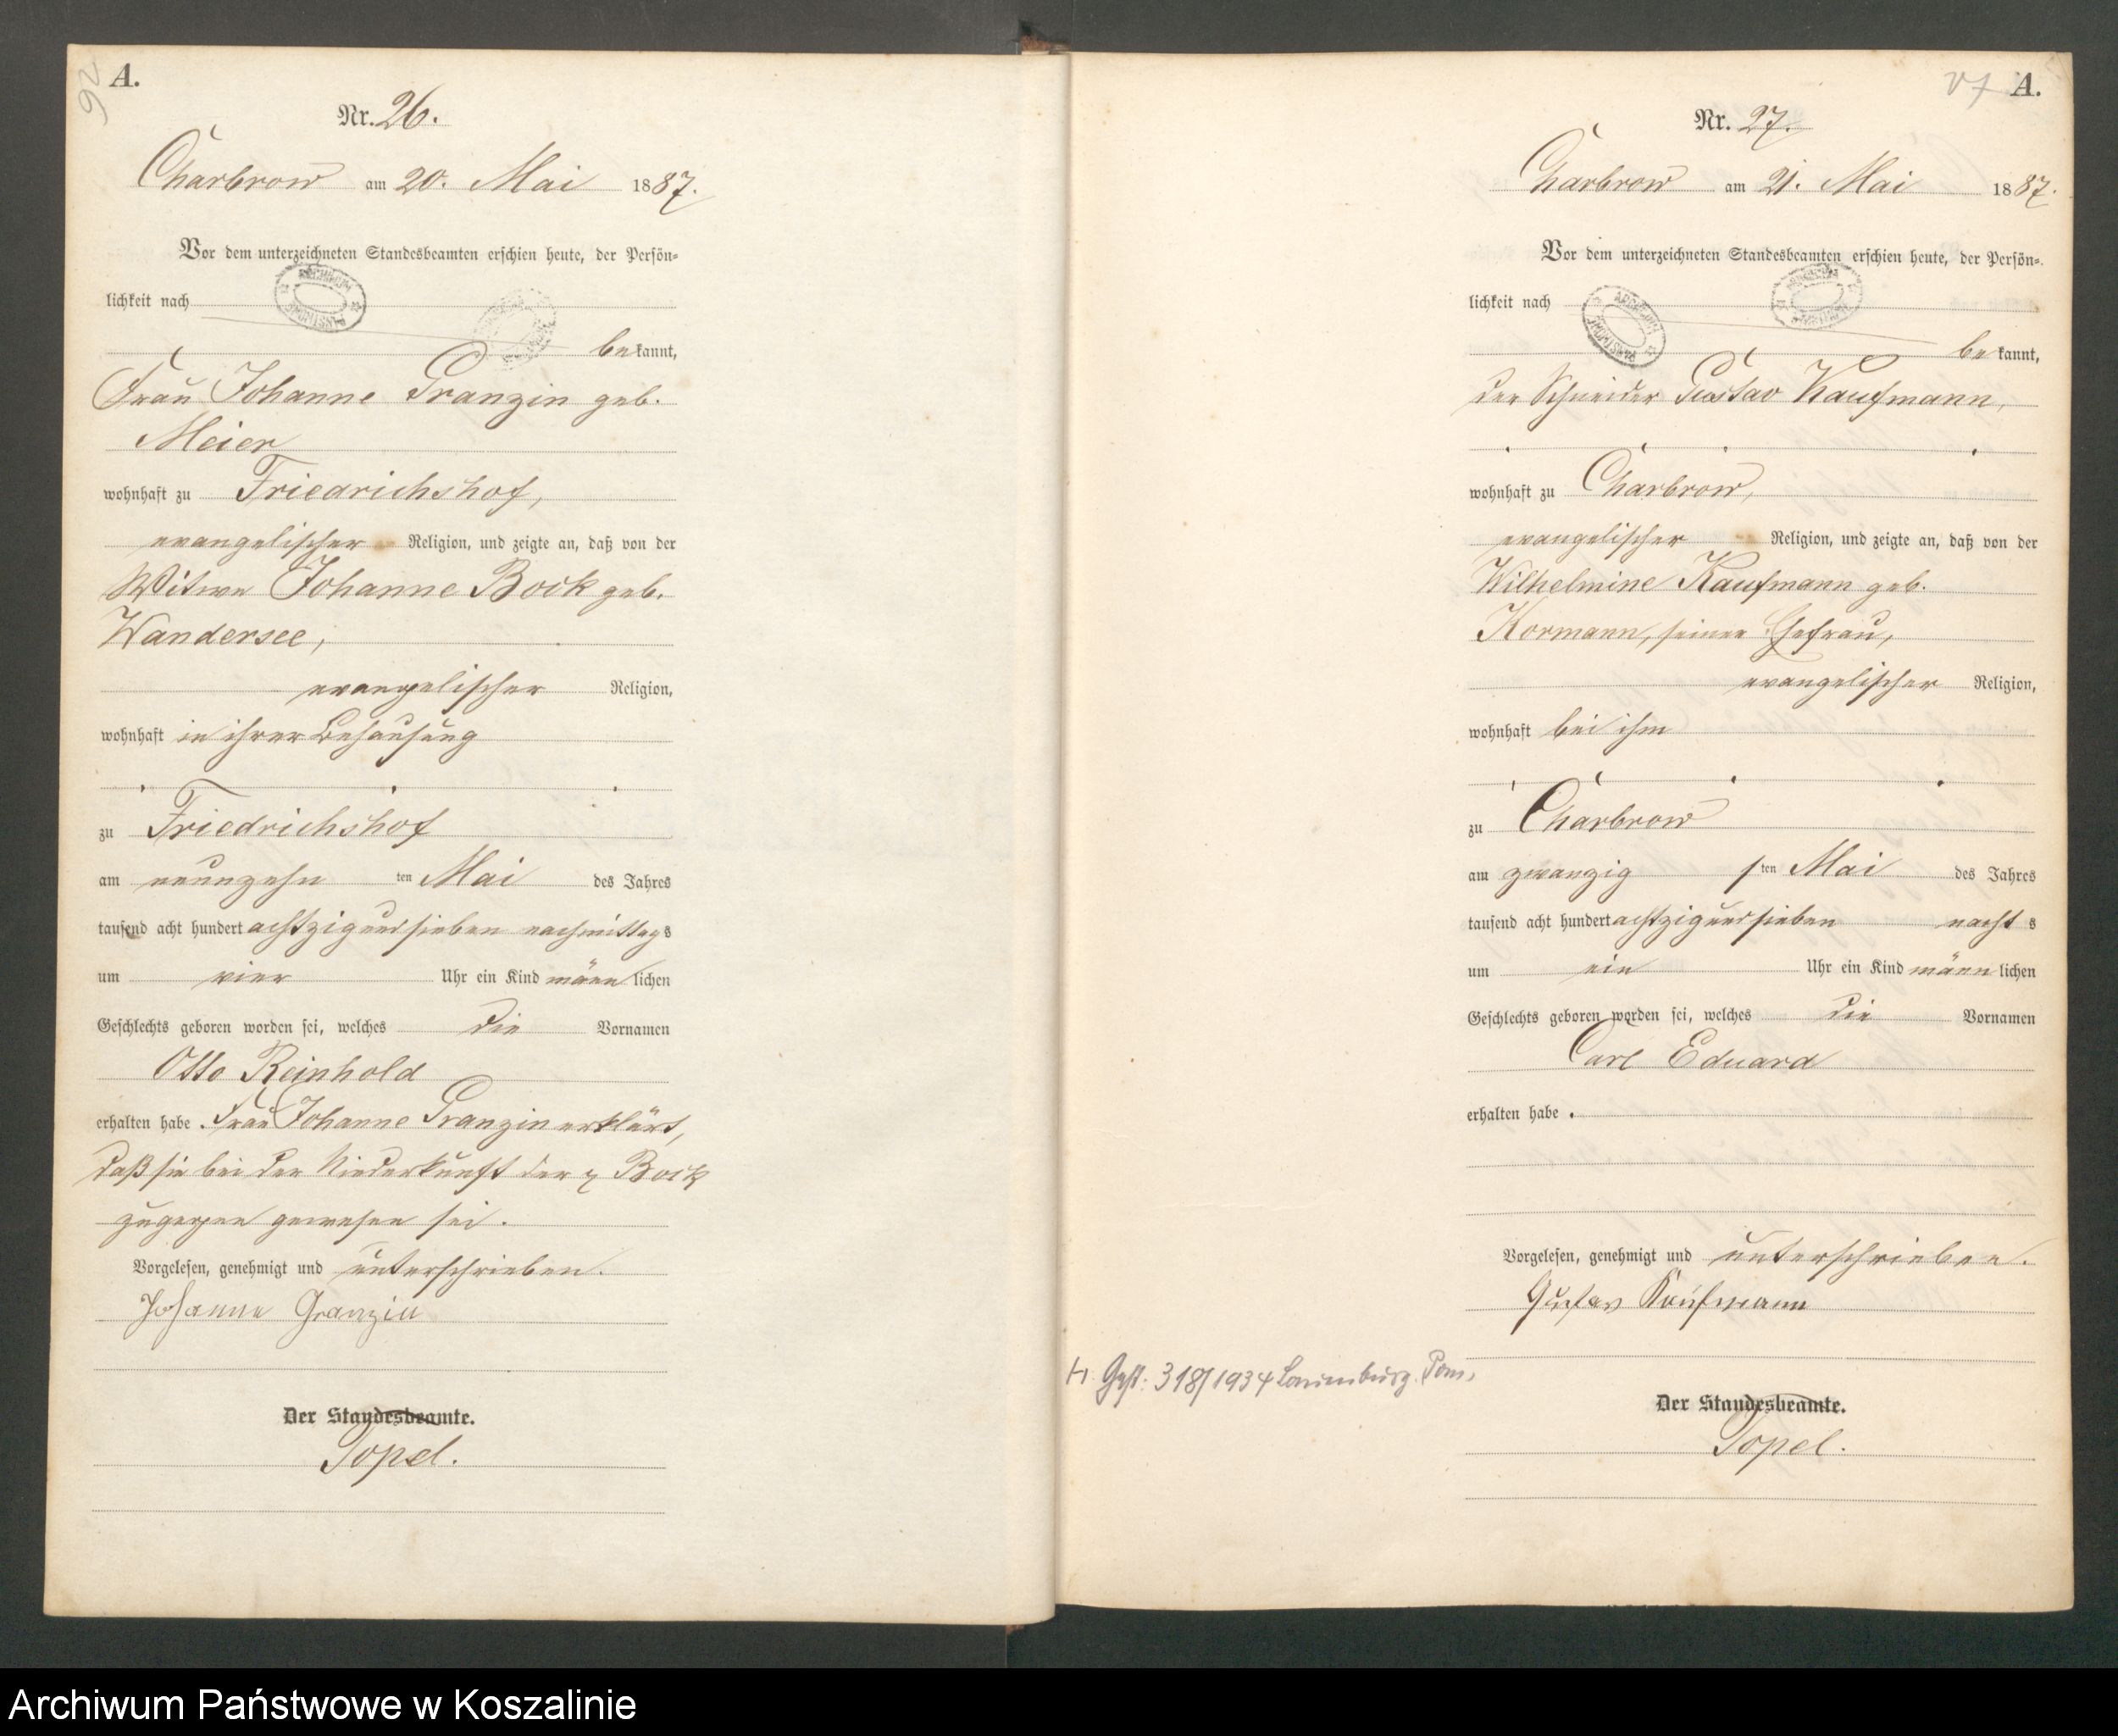 92
A.
Nr. 26.
Charbrow am 20. Mai 1887.
Vor dem unterzeichneten Standesbeamten erschien heute, der Persön-
lichkeit nach
bekannt,
Frau Johanne Granzin geb.
Meier
wohnhaft zu Friedrichshof,
evangelischer Religion, und zeigte an, daß von der
Witwe Johanne Bock geb.
Wandersee,
evangelischer Religion,
wohnhaft in ihrer Behausung
zu Friedrichshof
am neunzehn ten Mai des Jahres
tausend acht hundert achtzigundsieben nachmittags
um vier Uhr ein Kind männlichen
Geschlechts geboren worden sei, welches die Vornamen
Otto Reinhold
erhalten habe. Frau Johanne Granzin erklärt,
daß sie bei der Niederkunft der Bock
zugegen gewesen sei.
Vorgelesen, genehmigt und unterschrieben.
Johanne Granzin
Der Standesbeamte.
Topel.
A.
Nr. 27.
Charbrow am 21. Mai 1887.
Vor dem unterzeichneten Standesbeamten erschien heute, der Persön-
lichkeit nach
bekannt,
der Schneider Gustav Kaufmann,
wohnhaft zu Charbrow,
evangelischer Religion, und zeigte an, daß von der
Wilhelmine Kaufmann geb.
Kormann, seiner Ehefrau,
evangelischer Religion,
wohnhaft bei ihm
zu Charbrow
am zwanzig sten Mai des Jahres
tausend acht hundert achtzigundsieben nachts
um ein Uhr ein Kind männlichen
Geschlechts geboren worden sei, welches die Vornamen
Carl Eduard
erhalten habe.
Vorgelesen, genehmigt und unterschrieben.
Gustav Kaufmann
H. Gest: 318/1934 Lauenburg. Pom.
Der Standesbeamte.
Topel.
Archiwum Państwowe w Koszalinie